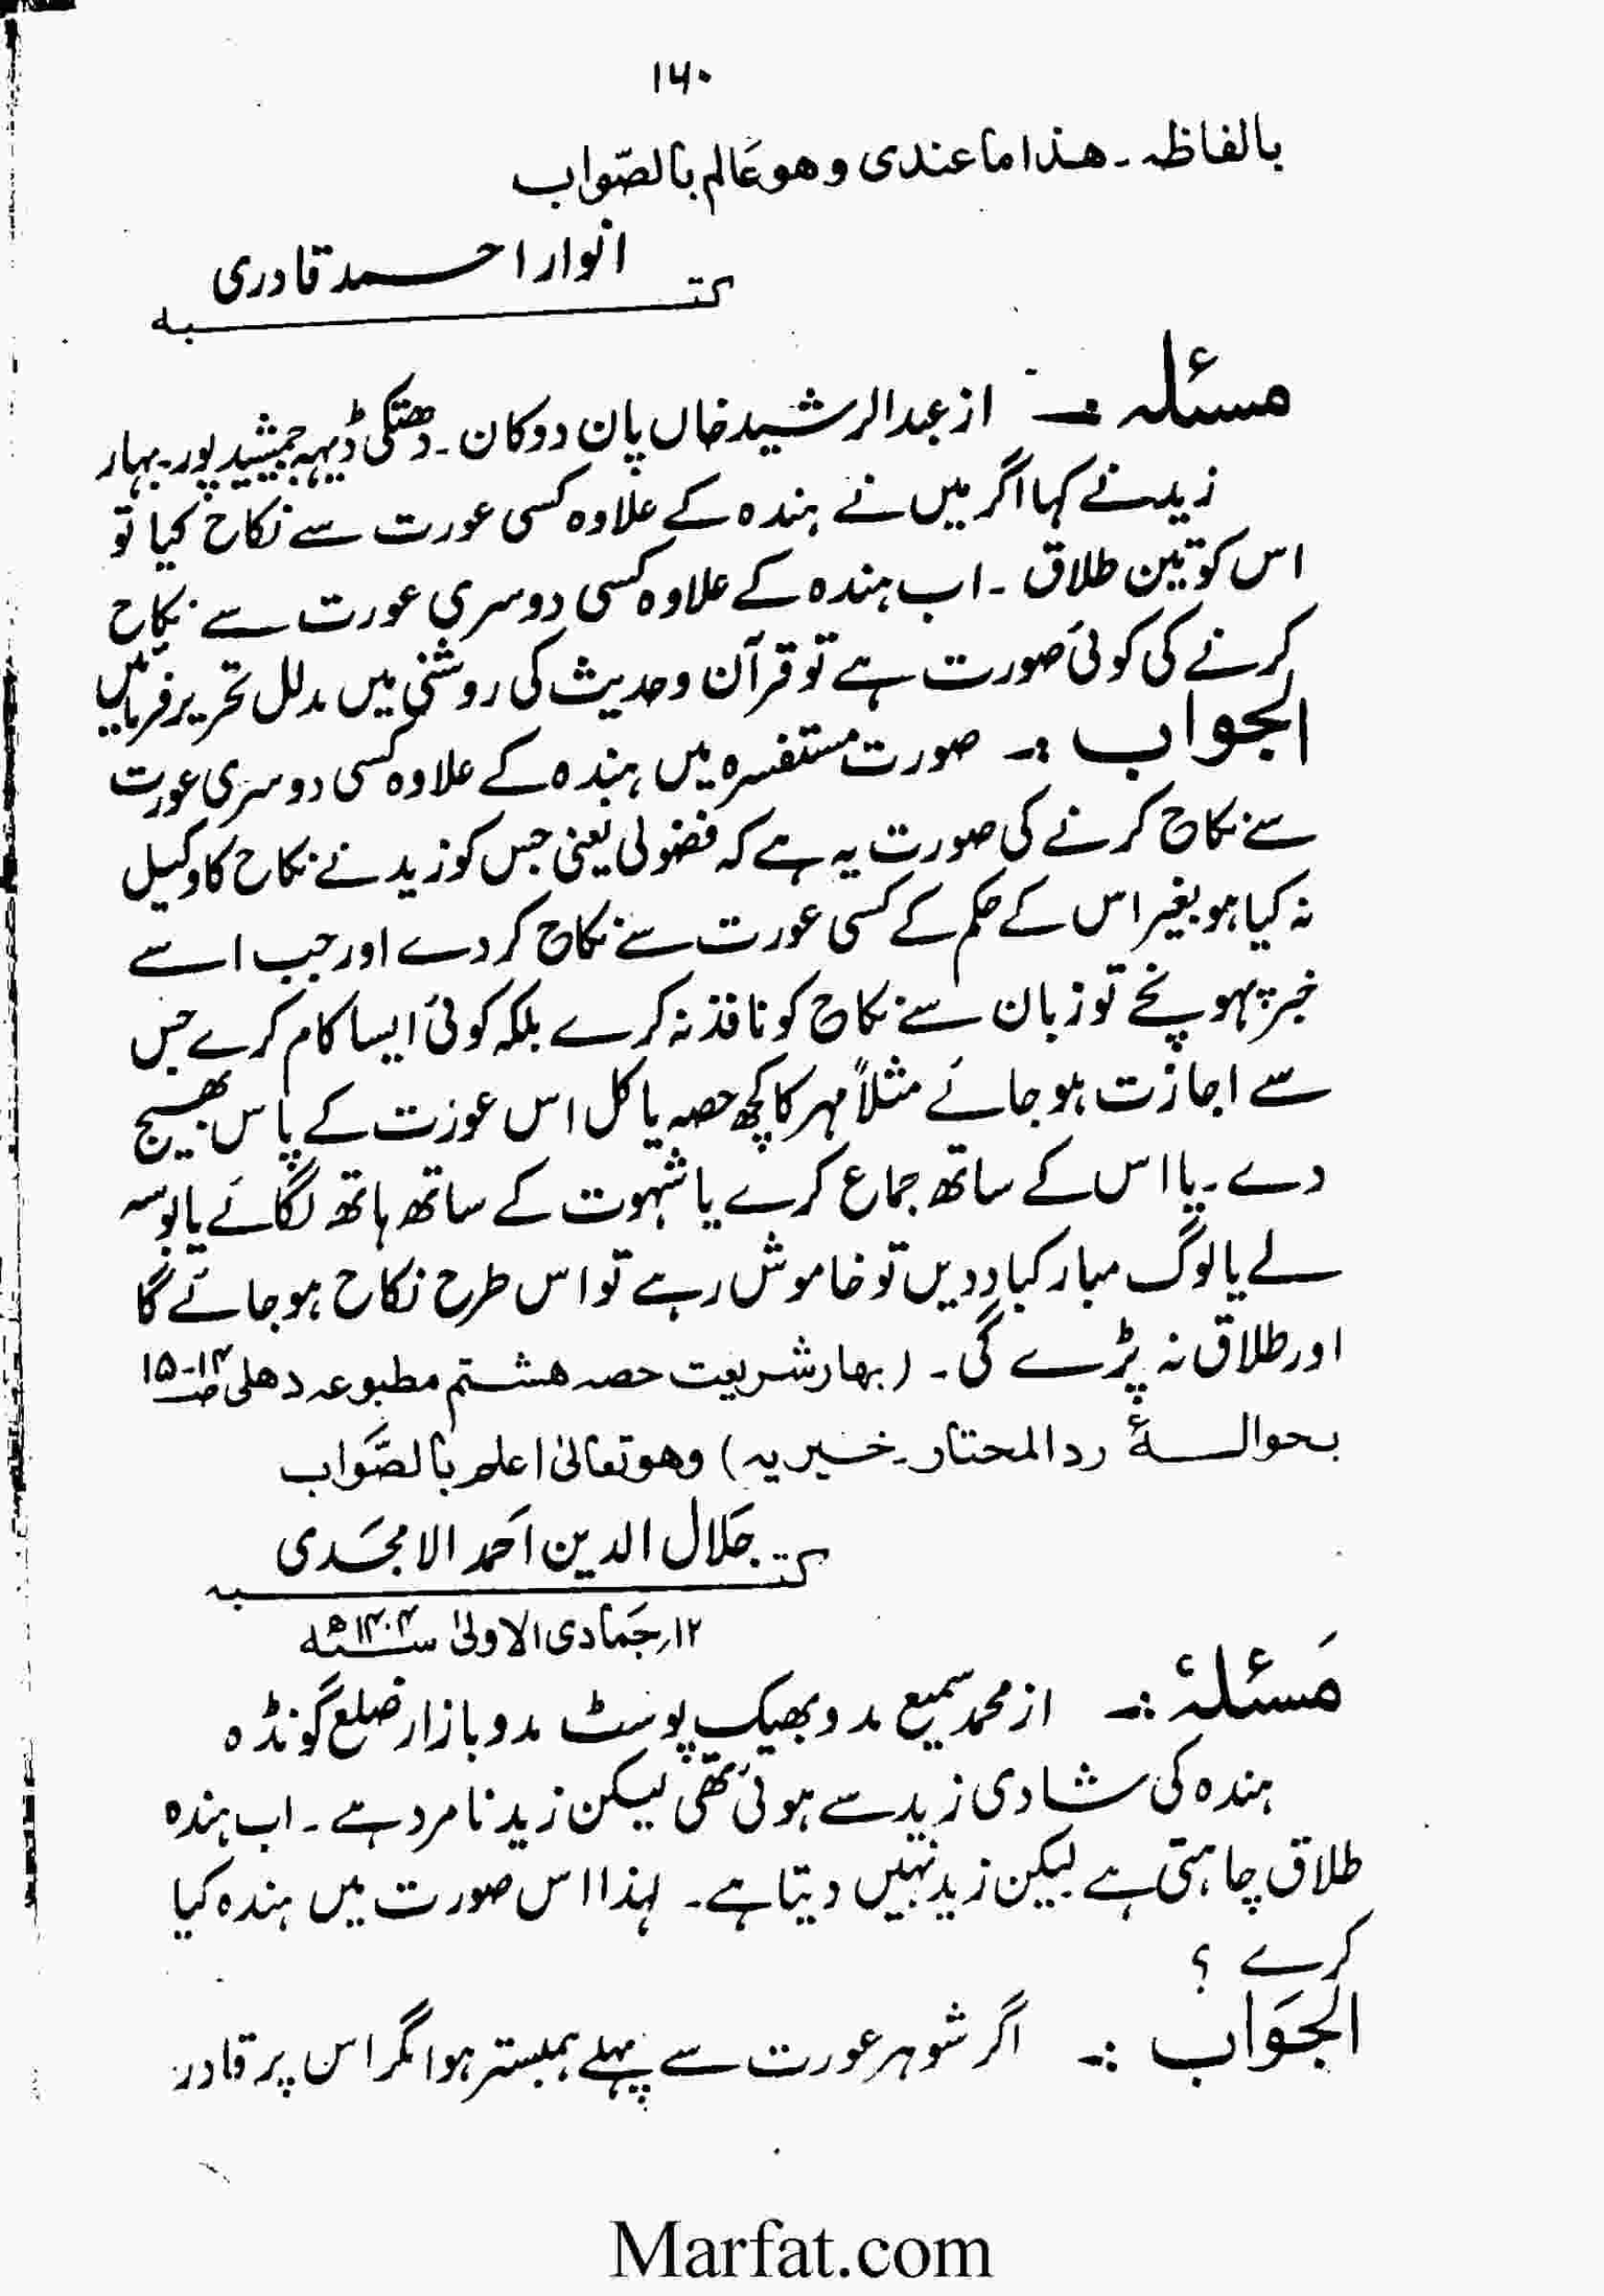 ۱۶۰
بالفاظہ ۔ ھذا ما عندی وھو عَالم بالصّواب
انوار احمد قادری
کتبہ
مسئلہ :۔ از عبدالرشید خاں پان دوکان ۔ دھتکی ڈیہہ جمشید پور۔ بہار
زید نے کہا اگر میں نے ہندہ کے علاوہ کسی عورت سے نکاح کیا تو
اس کو تین طلاق ۔ اب ہندہ کے علاوہ کسی دوسری عورت سے نکاح
کرنے کی کوئی صورت ہے تو قرآن وحدیث کی روشنی میں مدلل تحریر فرمائیں
الجواب :۔ صورت مستفسرہ میں ہندہ کے علاوہ کسی دوسری عورت
سے نکاح کرنے کی صورت یہ ہے کہ فضولی یعنی جس کو زید نے نکاح کا وکیل
نہ کیا ہو بغیر اس کے حکم کے کسی عورت سے نکاح کردے اور جب اسے
خبر پہونچے تو زبان سے نکاح کو نافذ نہ کرے بلکہ کوئی ایسا کام کرے جس
سے اجازت ہو جائے مثلاً مہر کا کچھ حصہ یا کل اس عورت کے پاس بھیج
دے ۔ یا اس کے ساتھ جماع کرے یا شہوت کے ساتھ ہاتھ لگائے یا بوسہ
لے یا لوگ مبارکباد دیں تو خاموش رہے تو اس طرح نکاح ہو جائے گا
اور طلاق نہ پڑے گی ۔ (بھار شریعت حصہ ھشتم مطبوعہ دھلی صـ ۱۴-۱۵
بحوالۂ ردالمحتار۔ خیریہ) وھو تعالیٰ اعلم بالصَّواب
جَلال الدین اَحمد الامجَدی
کتبہ
۱۲؍ جَمادی الاولیٰ سنہ ۱۴۰۴ھ
مَسئلۂ :۔ از محمد سمیع مدو بھیک پوسٹ مدو بازار ضلع گونڈہ
ہندہ کی شادی زید سے ہوئی تھی لیکن زید نامرد ہے ۔ اب ہندہ
طلاق چاہتی ہے لیکن زید نہیں دیتا ہے ۔ لہذا اس صورت میں ہندہ کیا
کرے ؟
الجَواب :۔ اگر شوہر عورت سے پہلے ہمبستر ہوا مگر اس پر قادر
Marfat.com